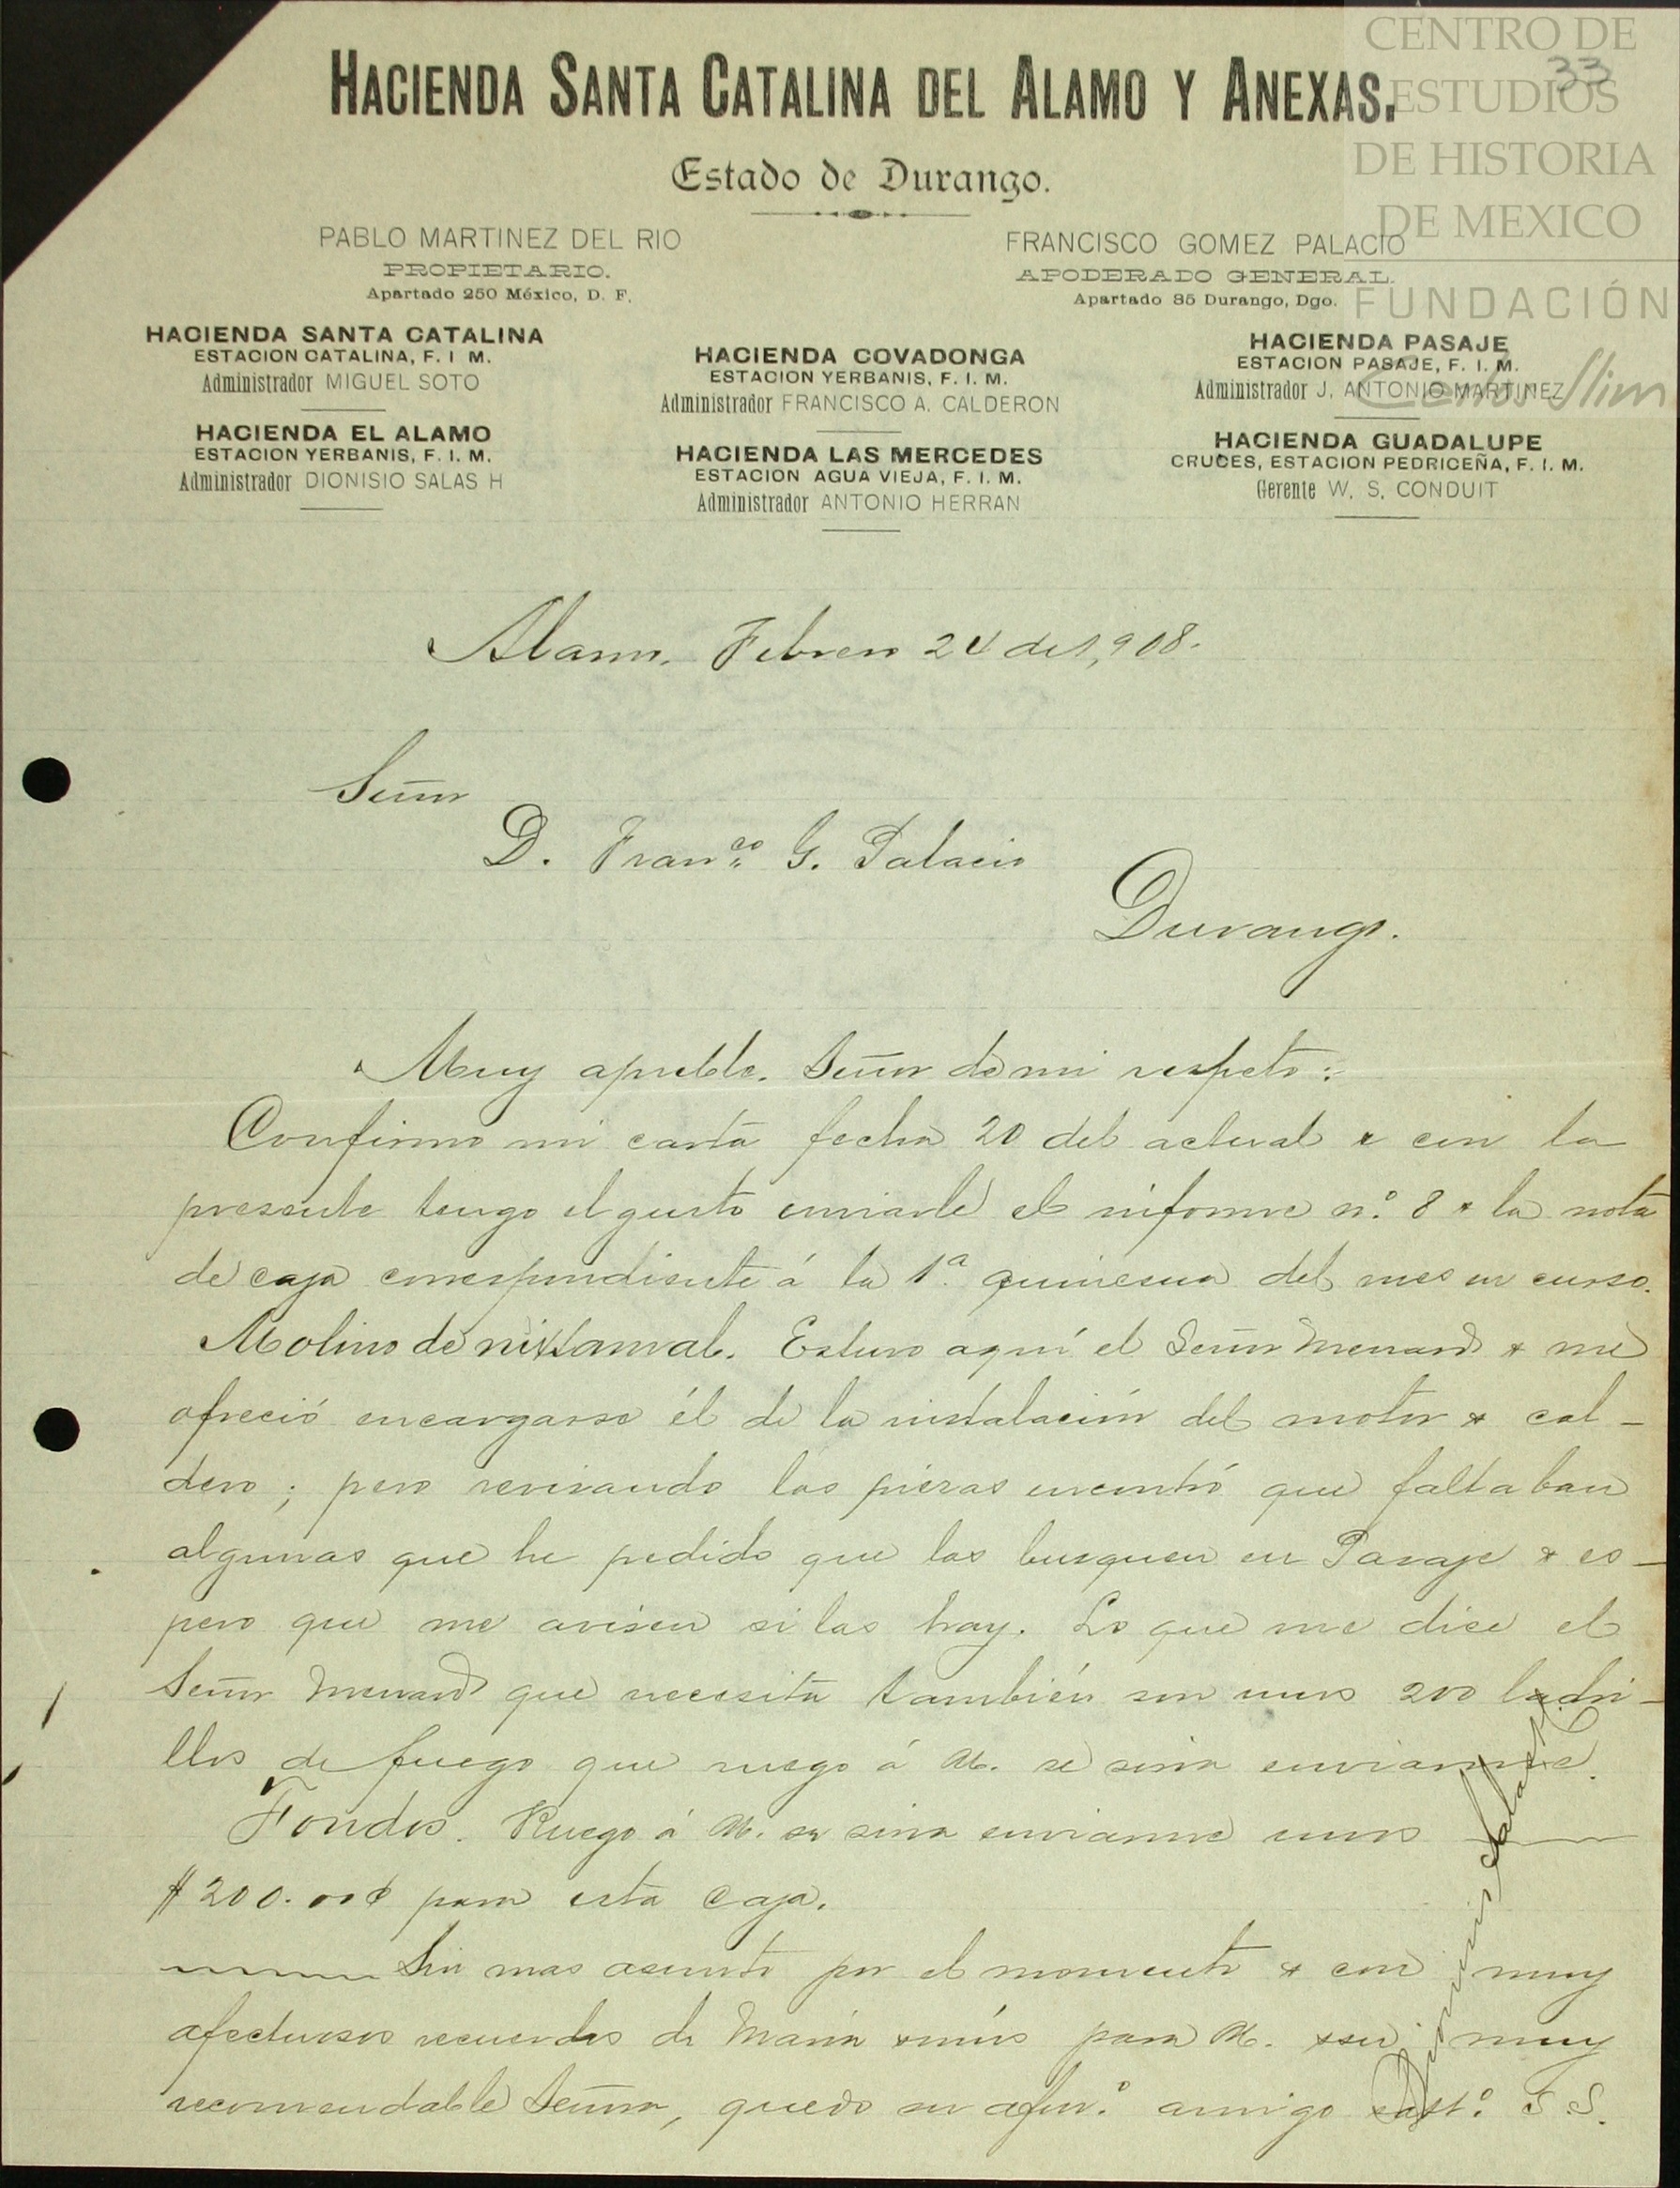 CENTRO DE
ESTUDIOS
DE HISTORIA
DE MEXICO
FUNDACIÓN
Carlos Slim
33
HACIENDA SANTA CATALINA DEL ALAMO Y ANEXAS.
Estado de Durango.
PABLO MARTINEZ DEL RIO
PROPIETARIO.
Apartado 250 México, D. F.
FRANCISCO GOMEZ PALACIO
APODERADO GENERAL.
Apartado 85 Durango, Dgo.
HACIENDA SANTA CATALINA
ESTACION CATALINA, F. I M.
Administrador MIGUEL SOTO
HACIENDA EL ALAMO
ESTACION YERBANIS, F. I. M.
Administrador DIONISIO SALAS H
HACIENDA COVADONGA
ESTACION YERBANIS, F. I. M.
Administrador FRANCISCO A. CALDERON
HACIENDA LAS MERCEDES
ESTACION AGUA VIEJA, F. I. M.
Administrador ANTONIO HERRAN
HACIENDA PASAJE
ESTACION PASAJE, F. I. M.
Administrador J. ANTONIO MARTINEZ
HACIENDA GUADALUPE
CRUCES, ESTACION PEDRICEÑA, F. I. M.
Gerente W. S. CONDUIT
Alamo. Febrero 24 de 1,908.
Señor
D. Franco. G. Palacio
Durango.
Muy apreble. Señor de mi respeto:
Confirmo mi carta fecha 20 del actual & con la
presente tengo el gusto enviarle el informe n.º 8 & la nota
de caja correspondiente á la 1.ª quincena del mes en curso.
Molino de nixtamal. Estuvo aquí el Señor Menard & me
ofreció encargarse él de la instalación del motor & cal-
dero; pero revisando las piezas encontró que faltaban
algunas que he pedido que las busquen en Pasaje & es-
pero que me avisen si las hay. Lo que me dice el
Señor Menard que necesita también son unos 200 ladri-
llos de fuego que ruego á U. se sirva enviarme.
Fondos. Ruego á U. se sirva enviarme unos
$200.00¢ para esta Caja.
Sin mas asunto por el momento & con muy
afectuosos recuerdos de María & míos para U. & su muy
recomendable Señora, quedo su afmo. amigo S. S.
Dionisio Salas H.